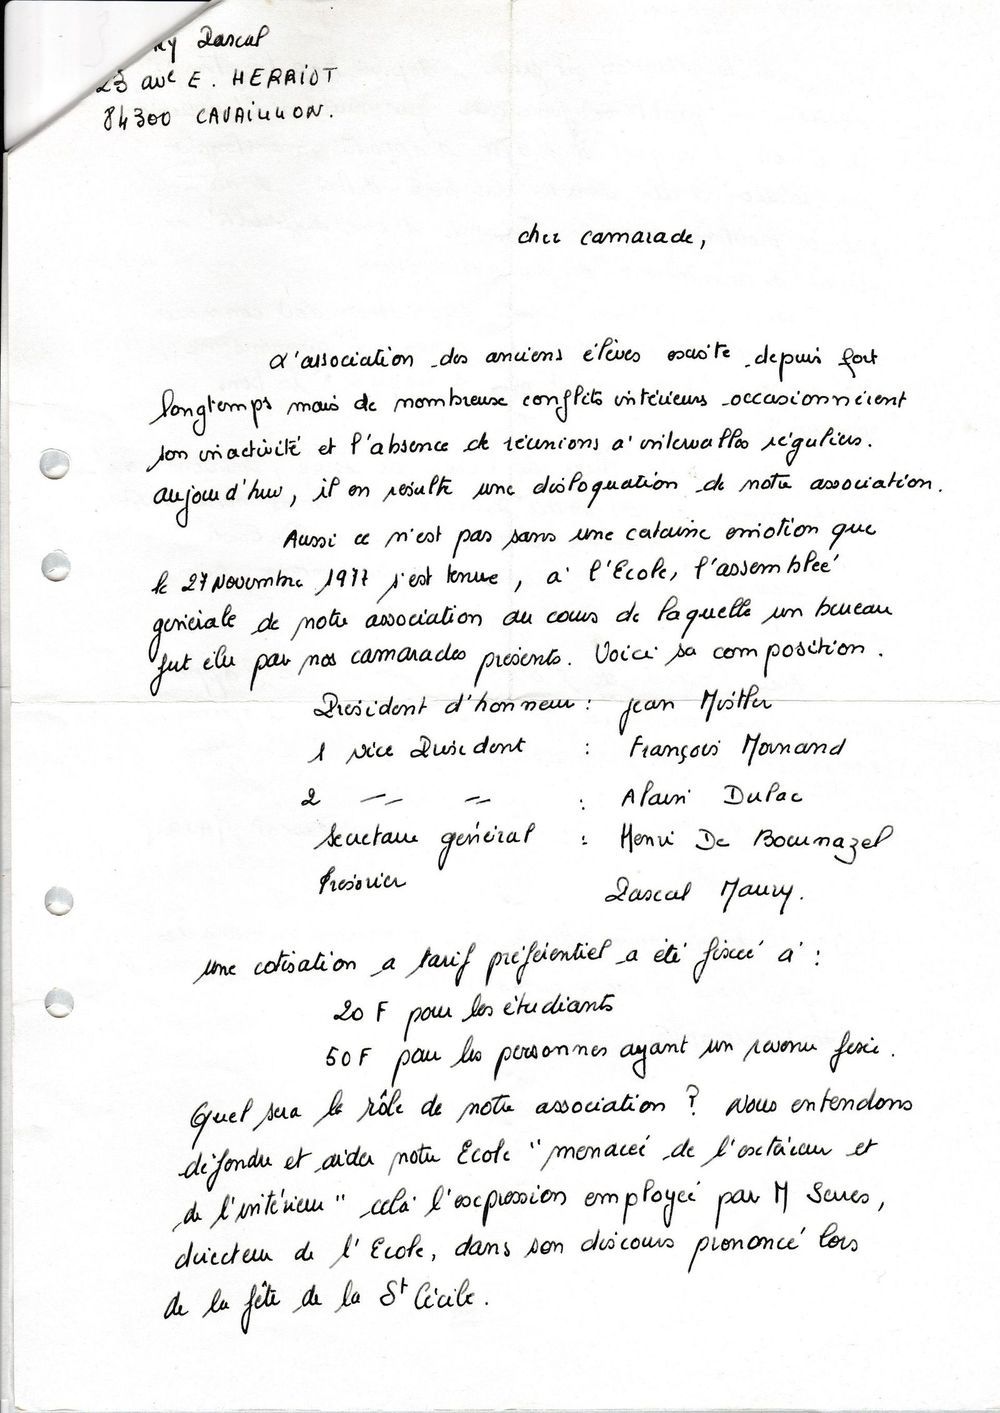 ry Pascal
23 ave E. HERRIOT
84300 CAVAILLON.
cher camarade,
L'association des anciens élèves existe depuis fort
longtemps mais de nombreuse conflits intérieurs occasionnèrent
son inactivité et l'absence de réunions à intervalles réguliers.
aujourd'hui, il en résulte une disloquation de notre association.
Aussi ce n'est pas sans une certaine emotion que
le 27 Novembre 1977 s'est tenue, à l'Ecole, l'assembleé
géniérale de notre association au cours de laquelle un bureau
fut élu par nos camarades présents. Voici sa composition.
President d'honneur : Jean Mistler
1 vice President : François Mornand
2 -- -- : Alain Dulac
Secretaire général : Henri De Bournazel
Trésorier Pascal Maury.
une cotisation a tarif préférentiel a été fixeé à :
20 F pour les étudiants
50 F pour les personnes ayant un revenu fixe.
Quel sera le rôle de notre association ? Nous entendons
défendre et aider notre Ecole "menaceé de l'extérieur et
de l'intérieur" celà l'expression employeé par M Serres,
directeur de l'Ecole, dans son discours prononcé lors
de la fête de la St Cécile.